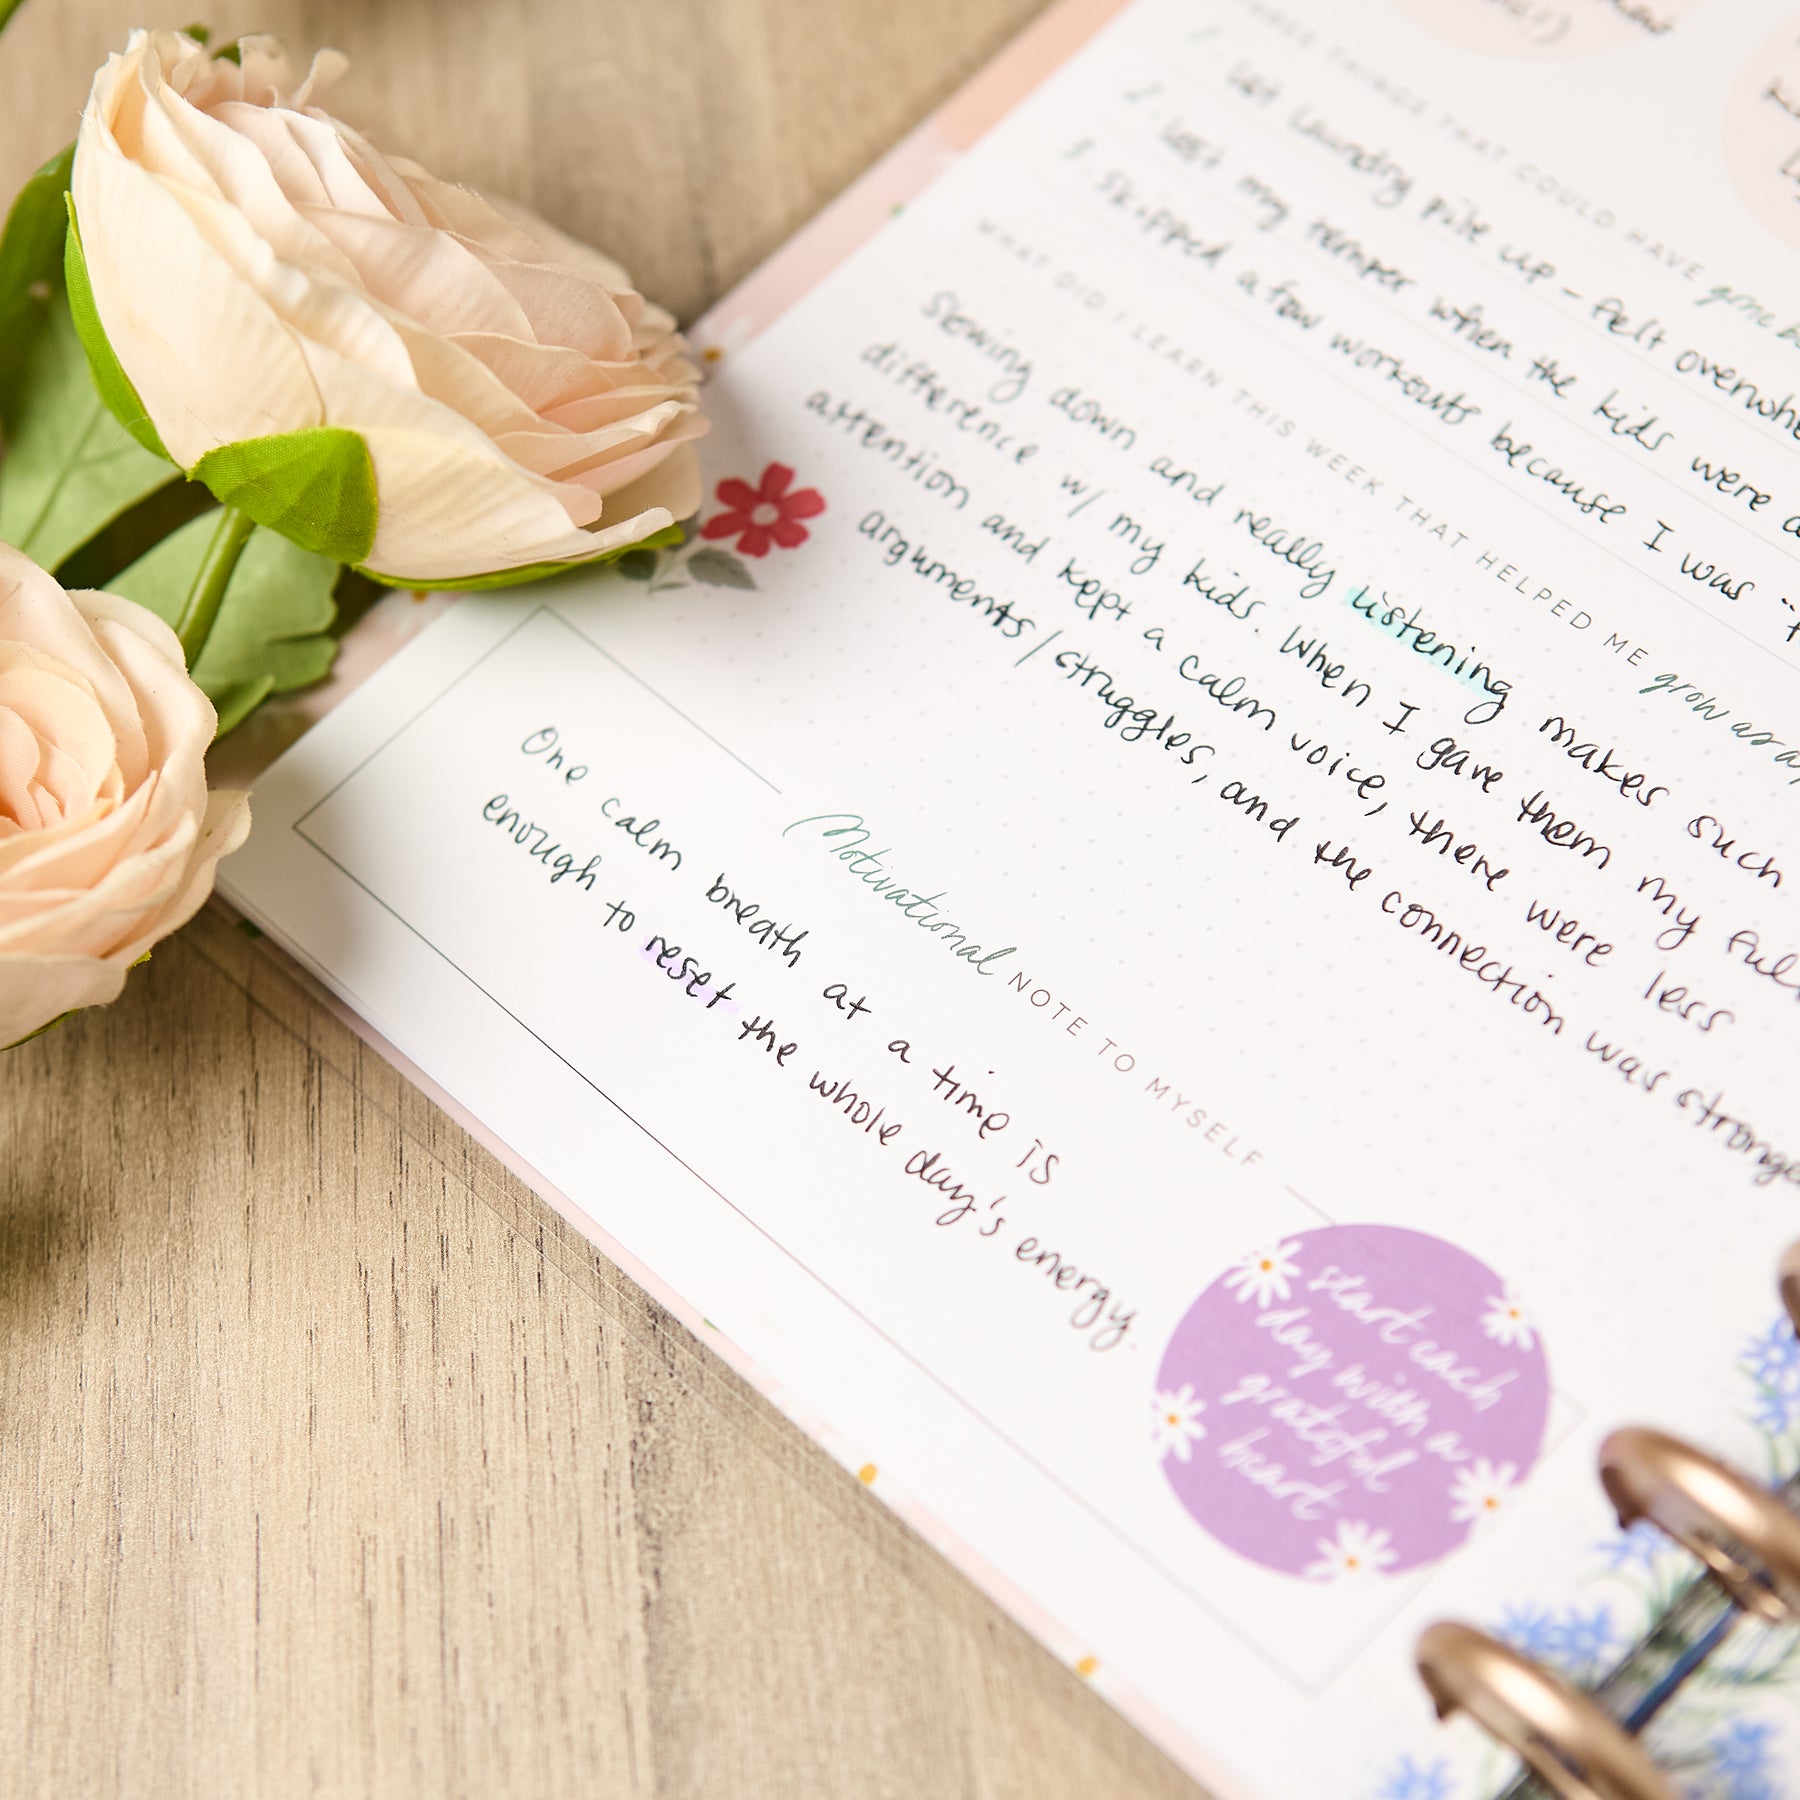 THREE THINGS THAT COULD HAVE gone
1. Let laundry pile up - felt
2. Lost my temper when the kids were
3. Skipped a few workouts because I was
WHAT DID I LEARN THIS WEEK THAT HELPED ME grow as a
Slowing down and really listening makes such
difference w/ my kids. When I gave them my full
attention and kept a calm voice, there were less
arguments/struggles, and the connection was
Motivational NOTE TO MYSELF
One calm breath at a time is
enough to reset the whole day's energy.
start each
day with a
grateful
heart